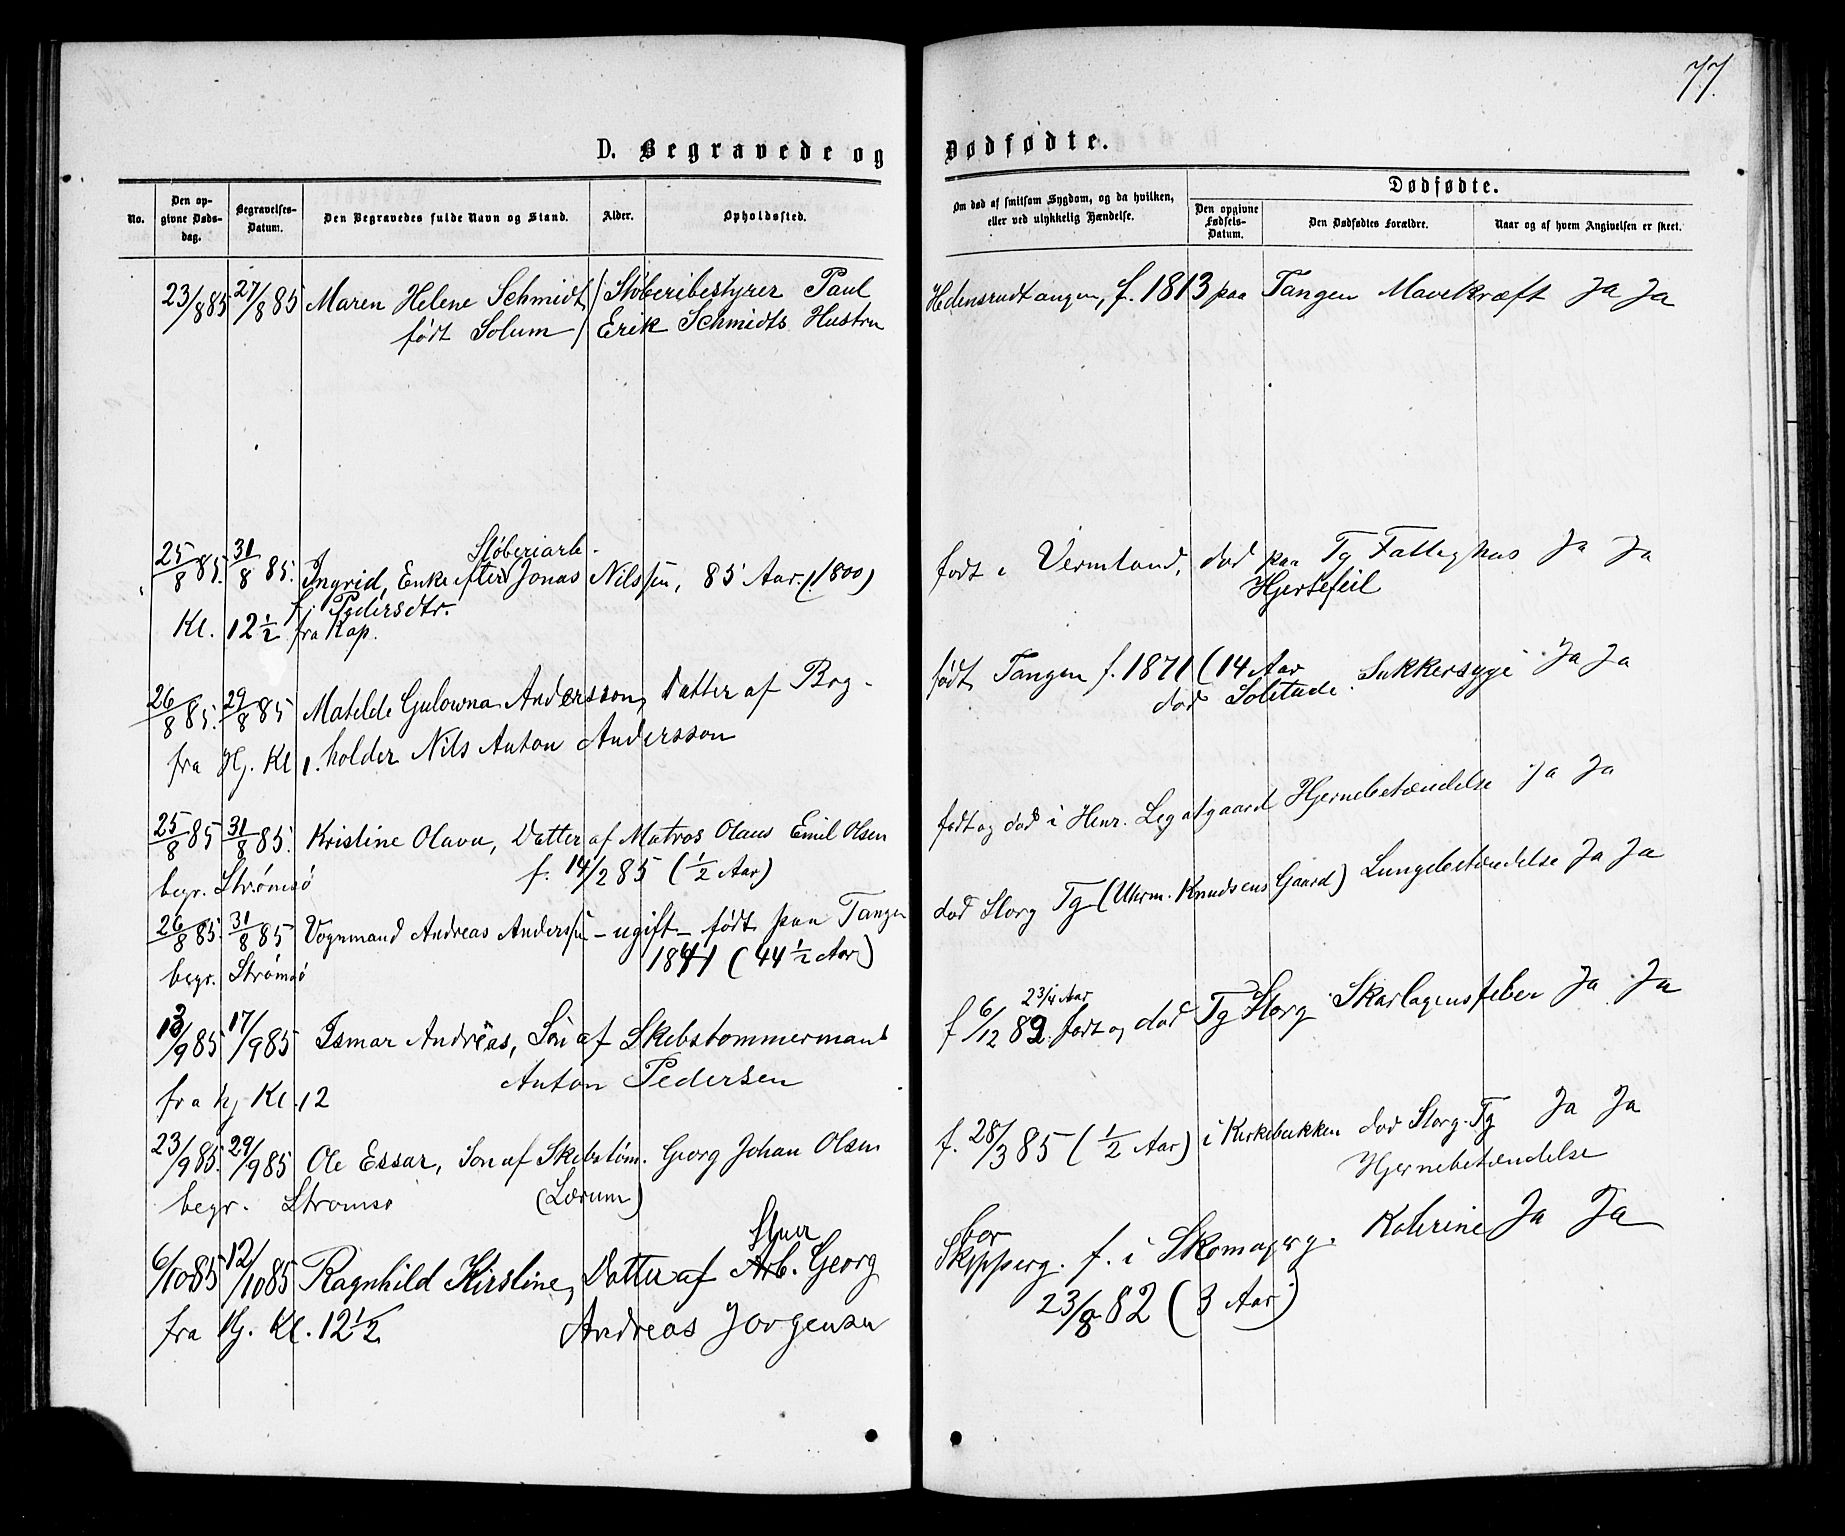 77.
D. Begravede og Dødfødte.
No.
Den opgivne Dødsdag.
Begravelses-Datum.
Den Begravedes fulde Navn og Stand.
Alder.
Opholdssted.
Om død af smitsom Sygdom, og da hvilken, eller ved ulykkelig Hændelse.
Dødfødte.
Den opgivne Fødsels-Datum.
Den Dødfødtes Forældre.
Naar og af hvem Angivelsen er skeet.
23/8 85 27/8 85 Maren Helene Schmidt / Støberibestyrer Paul Hedensrudtangen, f. 1813 paa Tangen Mavekræft Ja Ja
født Solum / Erik Schmidts Hustru
Støberiarb.
25/8 85. 31/8 85. Ingrid, Enke efter Jonas Nilssen, 85 Aar. (1800) født i Vermland, død paa Tg Fattighus Ja Ja
f. Pedersdtr. Hjertefeil
Kl. 12 1/2 fra Kap.
26/8 85. 29/8 85 Matilde Gulowna Andersson, Datter af Brg- født Tangen f. 1871 (14 Aar Sukkersyge Ja Ja
død Solitude.
fra Hj. Kl 1. holder Nils Anton Andersson
25/8 85 31/8 85. Kristine Olava, Datter af Matros Olaus Emil Olsen født og død i Henr. Legatgaard Hjernebetændelse Ja Ja
begr. Strømsø f. 14/2 85 (1/2 Aar)
26/8 85. 31/8 85 Vognmand Andreas Anderssen - ugift - født paa Tangen død Storg Tg (Uhrm. Knudsens Gaard) Lungebetændelse Ja Ja
begr. Strømsø 1841 (44 1/2 Aar)
2 3/4 Aar
13/9 85 17/9 85 Ismar Andreas, Søn af Skibstømmermand f 6/12 82. født og død Tg Storg Skarlagensfeber Ja Ja
fra hj Kl. 12 Anton Pedersen
23/9 85. 29/9 85 Ole Essar, Søn af Skibstøm. Georg Johan Olsen f. 28/3 85 (1/2 Aar) i Kirkebakken død Storg. Tg Ja Ja
begr. Strømsø (Lærum) Hjernebetændelse
6/10 85 12/10 85 Ragnhild Kirstine, Datter af Arb. Georg Skipperg. f. i Skomagerg. Ja Ja
fra Hj. Kl. 12 1/2 Andreas Jørgensen 23/8 82 (3 Aar)